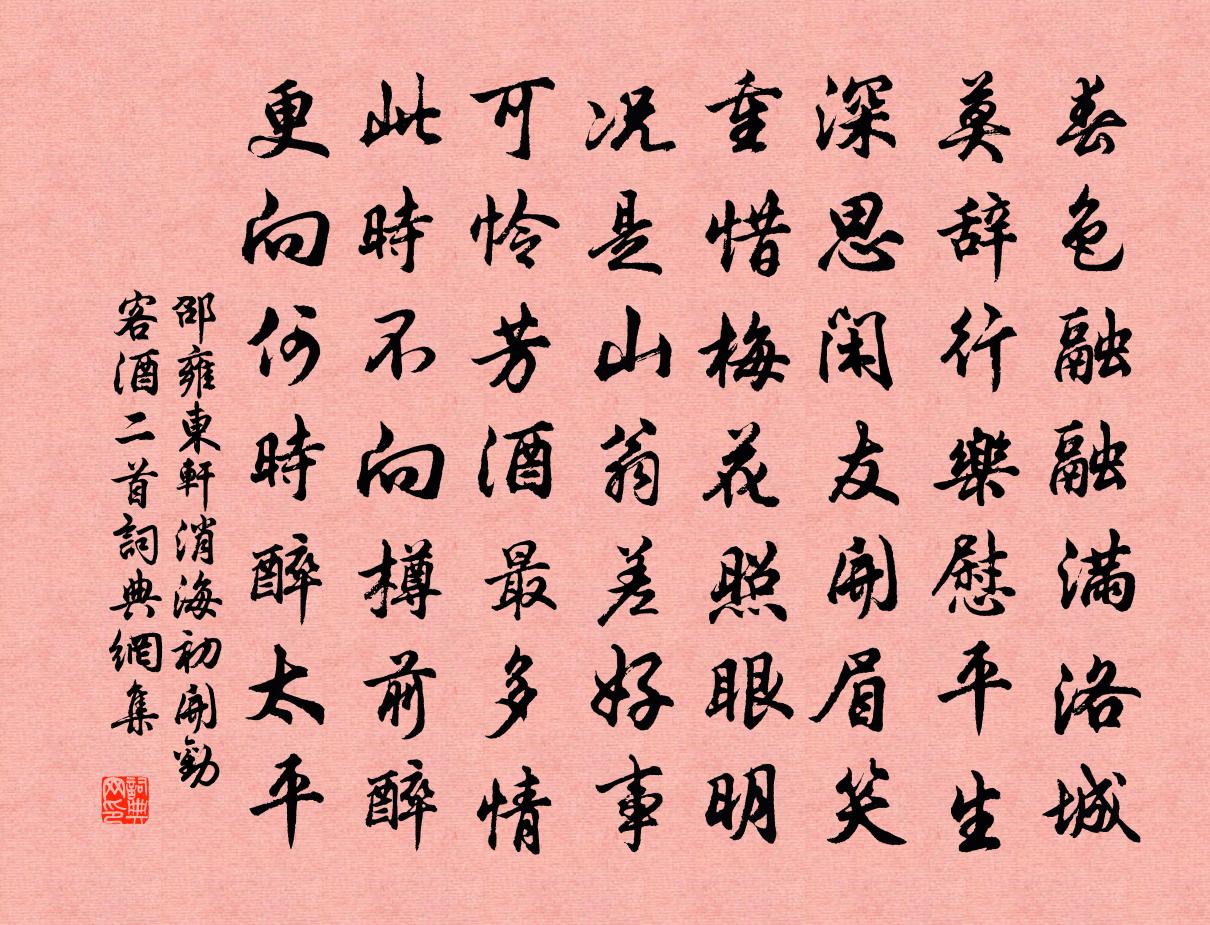 春色融融滿洛城
莫辞行樂慰平生
深思閑友開眉笑
重惜梅花照眼明
况是山翁差好事
可怜芳酒最多情
此時不向樽前醉
更向何時醉太平
邵雍東軒消海初開勸
客酒二首詞典網集
詞典
网印